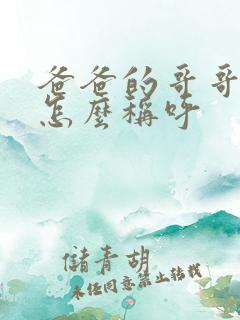 爸爸的哥哥
怎麼稱呼
儲青胡
未經同意禁止轉載